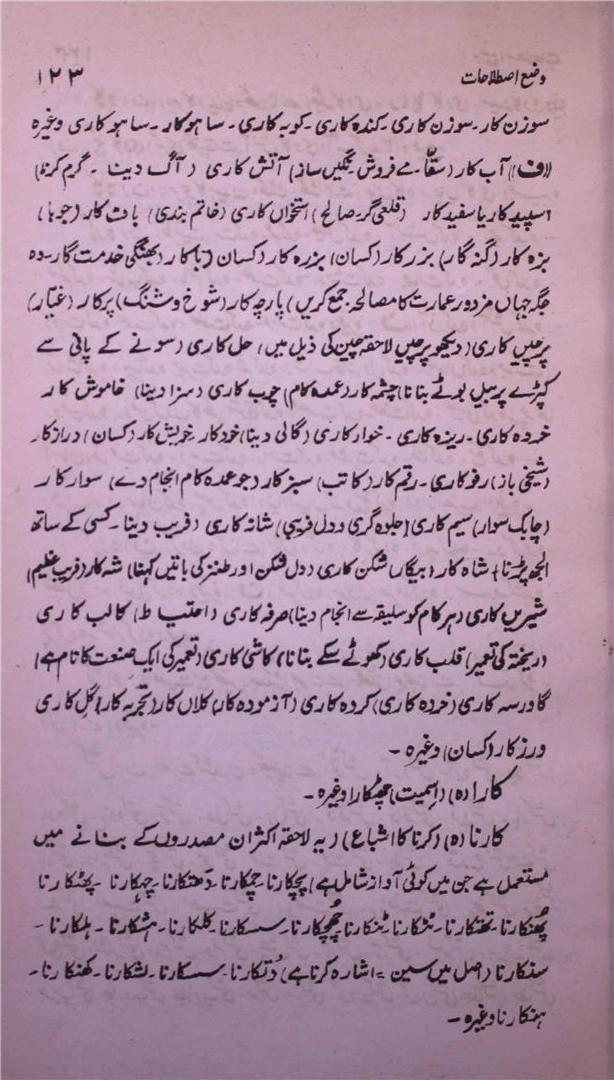 وضع اصطلاحات ۱۲۳
سوزن کار۔ سوزن کاری۔ کندہ کاری۔ کوبہ کاری۔ ساہوکار۔ ساہوکاری وغیرہ
(ف) آب کار (سقّا۔ مے فروش۔ نگیں ساز) آتش کاری (آگ دینا۔ گرم کرنا)
اسپیدکار یا سفیدکار (قلعی گر۔ صالح) استخواں کاری (خاتم بندی) بافت کار (جولاہا)
بزہ کار (گنہ گار) بزرکار (کسان) بزرہ کار (کسان) پاکار (بھنگی خدمت گار۔ وہ
جگہ جہاں مزدور عمارت کا مصالحہ جمع کریں) پارچہ کار (شوخ و شنگ) پرکار (عیّار)
پرچیں کاری (دیکھو پرچیں لاحقہ چین کی ذیل میں) حل کاری (سونے کے پانی سے
کپڑے پر بیل بوٹے بنانا) چشمہ کار (عمدہ کام) چوب کاری (سزا دینا) خاموش کار
خردہ کاری۔ ریزہ کاری۔ خوارکاری (گالی دینا) خودکار۔ خویش کار (کسان) درازکار
(شیخی باز) رفوکاری۔ رقم کار (کاتب) سبزکار (جو عمدہ کام انجام دے) سوارکار
(چابک سوار) سیم کاری (جلوہ گری و دل فریبی) شانہ کاری (فریب دینا۔ کسی کے ساتھ
الجھ پڑنا) شاہ کار (بیگار) شکن کاری (دل شکن اور طنز کی باتیں کہنا) شہ کار (فریب عظیم)
شیریں کاری (ہر کام کو سلیقہ سے انجام دینا) صرفہ کاری (احتیاط) کالب کاری
(ریختہ کی تعمیر) قلب کاری (کھوٹے سکے بنانا) کاشی کاری (تعمیر کی ایک صنعت کا نام ہے)
گاورسہ کاری (خردہ کاری) کردہ کاری (آزمودہ کار) کلاں کار (تجربہ کار) گل کاری
ورزکار (کسان) وغیرہ۔
کارا (ہ) (اسمیت) چھٹکارا وغیرہ۔
کارنا (ہ) (کرنا کا اشباع) (یہ لاحقہ اکثر ان مصدروں کے بنانے میں
مستعمل ہے جن میں کوئی آواز شامل ہے) پچکارنا۔ چمکارنا۔ دھتکارنا۔ چہکارنا۔ پھٹکارنا
پھنکارنا۔ تھتکارنا۔ ٹنکارنا چھچکارنا۔ سسکارنا۔ کلکارنا۔ ہشکارنا۔ ہلکارنا۔
سنکارنا (اصل میں سین = اشارہ کرنا ہے) دتکارنا۔ سسکارنا۔ لشکارنا۔ کھنکارنا۔
ہنکارنا وغیرہ۔